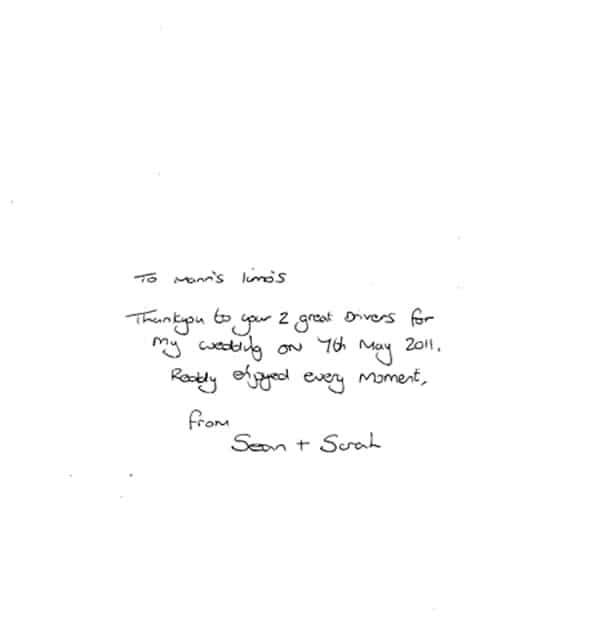 To Mann's limo's
Thankyou to your 2 great Drivers for
my wedding on 7th May 2011.
Really enjoyed every moment,
from
Sean + Sarah